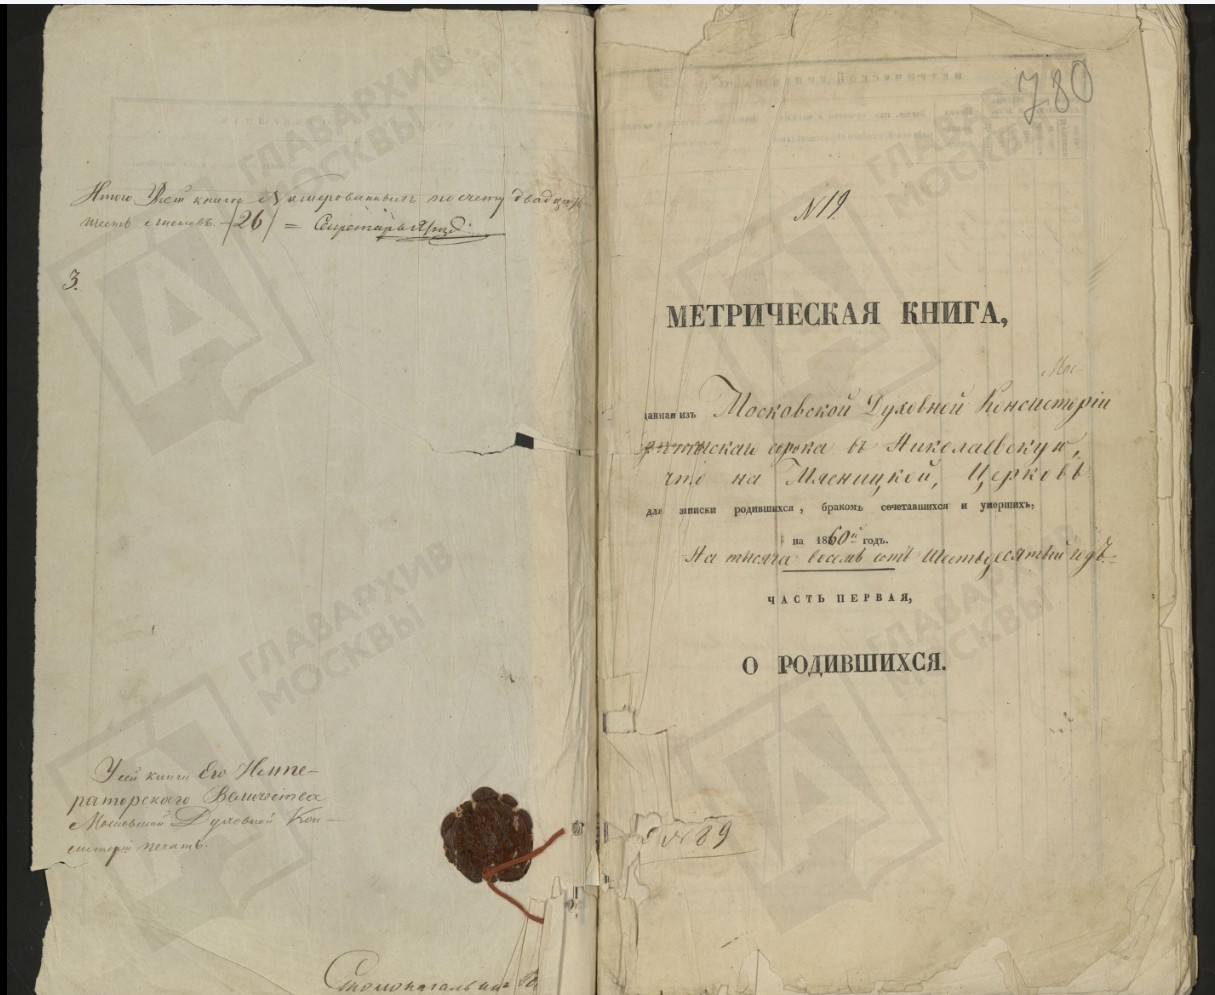 Итого въ сей книге нумерованныхъ по счету двадцать
шесть листовъ. /26/ = Секретарь
3.
У сей книги Его Импе-
раторскаго Величества
Московской Духовной Кон-
систоріи печать.
780
N 19
МЕТРИЧЕСКАЯ КНИГА,
данная изъ Московской Духовной Консисторіи
сорока въ Николаевскую,
что на Мясницкой, Церковь
для записки родившихся, бракомъ сочетавшихся и умершихъ,
на 1860й годъ.
На тысяча восемь сотъ шестьдесятый годъ.
ЧАСТЬ ПЕРВАЯ,
О РОДИВШИХСЯ.
№ 89
ГЛАВАРХИВ
МОСКВЫ
ГЛАВАРХИВ
МОСКВЫ
ГЛАВАРХИВ
МОСКВЫ
ГЛАВАРХИВ
МОСКВЫ